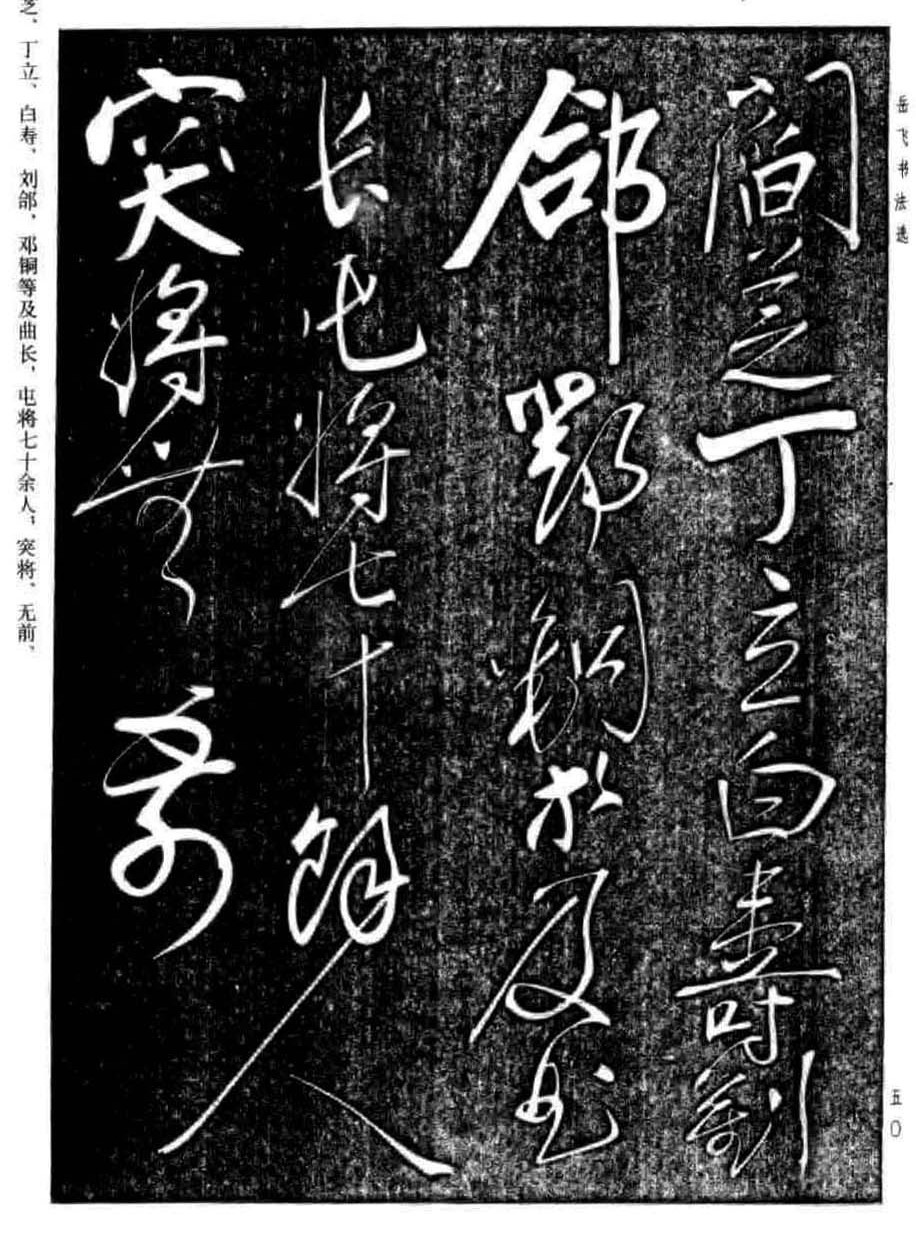 岳飞书法选
五〇
閻芝丁立白壽劉
郃鄧銅等及曲
長屯將七十餘人
突將無前
芝、丁立、白寿、刘郃，邓铜等及曲长，屯将七十余人，突将、无前、